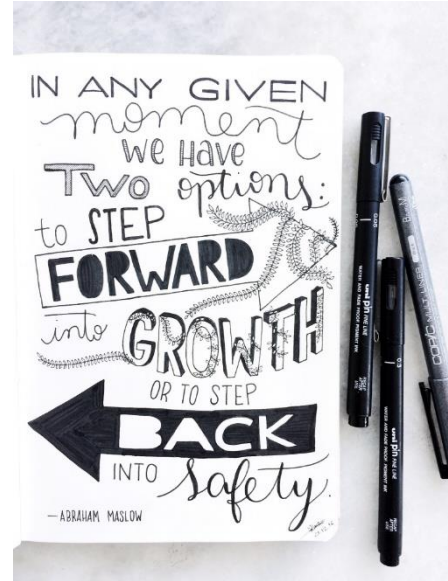 IN ANY GIVEN
moment
WE HAVE
TWO options:
to STEP
FORWARD
into GROWTH
OR TO STEP
BACK
INTO safety.
— ABRAHAM MASLOW
0.05
uni pin FINE LINE
WATER AND FADE PROOF PIGMENT INK
0.3
uni pin FINE LINE
WATER AND FADE PROOF PIGMENT INK